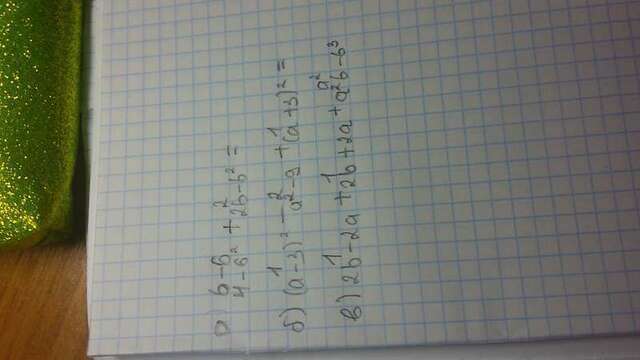 а) b-6/4-b² + 2/2b-b² =
б) 1/(a-3)² - 2/a²-9 + 1/(a+3)² =
в) 1/2b-2a + 1/2b+2a + a²/a²b-b³